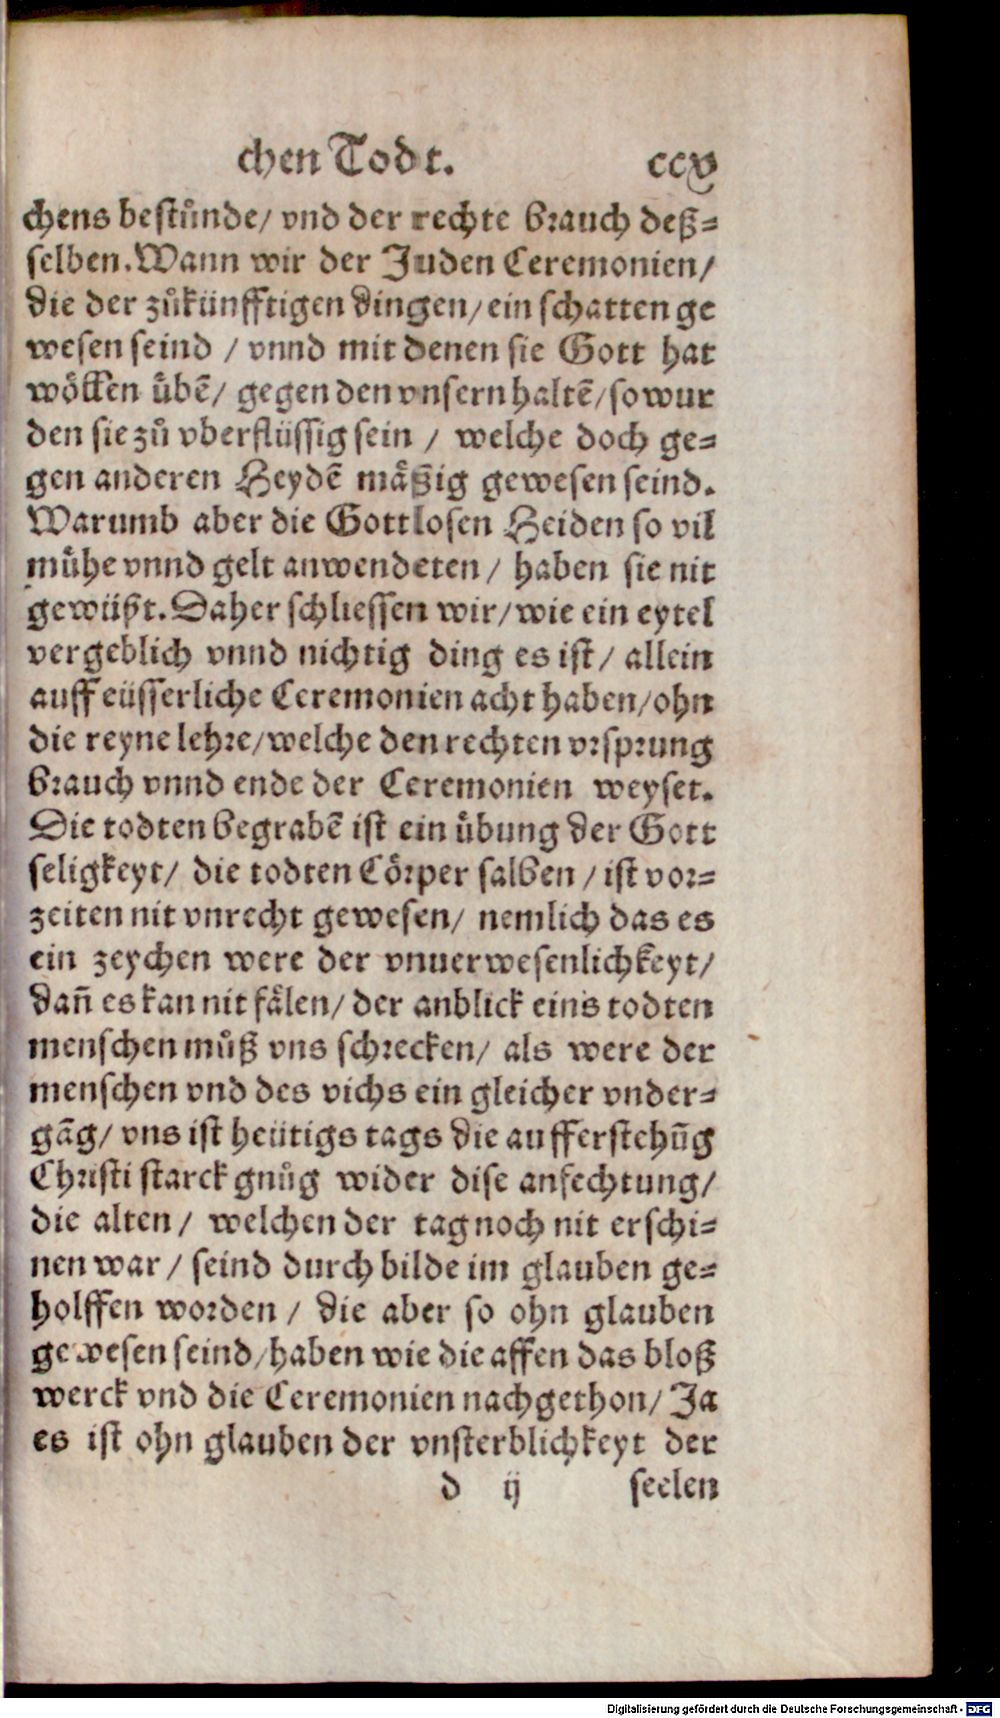 chen Todt. ccv
chens bestůnde/ vnd der rechte brauch deß-
selben. Wann wir der Juden Ceremonien/
die der zůkünfftigen dingen/ ein schatten ge
wesen seind / vnnd mit denen sie Gott hat
wöllen übẽ/ gegen den vnsern haltẽ/ so wur
den sie zů vberflüssig sein / welche doch ge-
gen anderen Heydẽ mäßig gewesen seind.
Warumb aber die Gottlosen Heiden so vil
mühe vnnd gelt anwendeten / haben sie nit
gewüßt. Daher schliessen wir/ wie ein eytel
vergeblich vnnd nichtig ding es ist/ allein
auff eüsserliche Ceremonien acht haben/ ohn
die reyne lehre/ welche den rechten vrsprung
brauch vnnd ende der Ceremonien weyset.
Die todten begrabẽ ist ein übung der Gott
seligkeyt/ die todten Cörper salben / ist vor-
zeiten nit vnrecht gewesen/ nemlich das es
ein zeychen were der vnuerwesenlichkeyt/
dañ es kan nit fälen/ der anblick eins todten
menschen můß vns schrecken/ als were der
menschen vnd des vichs ein gleicher vnder-
gãg/ vns ist heütigs tags die aufferstehũg
Christi starck gnůg wider dise anfechtung/
die alten / welchen der tag noch nit erschi-
nen war / seind durch bilde im glauben ge-
holffen worden / die aber so ohn glauben
gewesen seind/ haben wie die affen das bloß
werck vnd die Ceremonien nachgethon/ Ja
es ist ohn glauben der vnsterblichkeyt der
d ij seelen
Digitalisierung gefördert durch die Deutsche Forschungsgemeinschaft - DFG